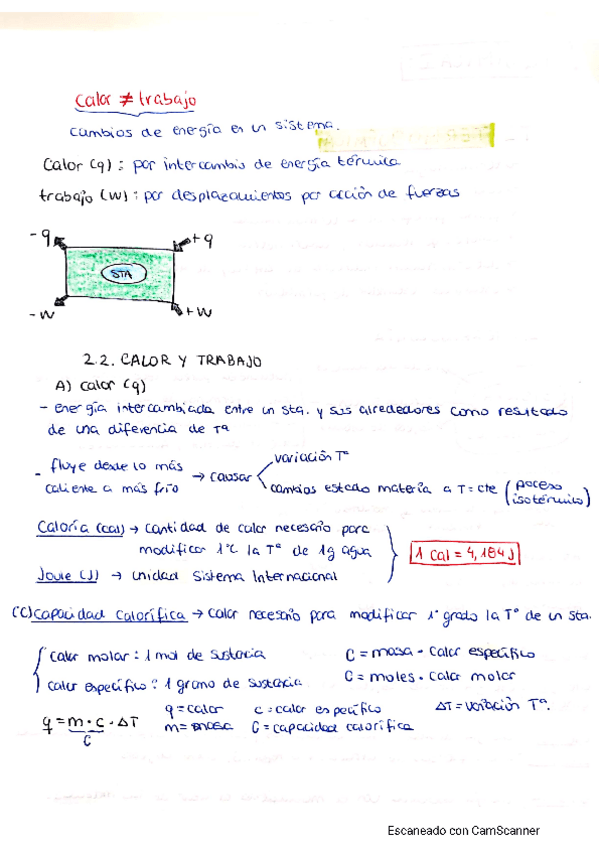 Calor ≠ trabajo
cambios de energía en un sistema.
Calor (q) : por intercambio de energía térmica
trabajo (w) : por desplazamientos por acción de fuerzas
-q
+q
STA
-w
+w
2.2. CALOR Y TRABAJO
A) Calor (q)
- energía intercambiada entre un sta. y sus alrededores como resultado
de una diferencia de Tª
- fluye desde lo más
caliente a más frío
→ causar
variación Tª
cambios estado materia a T=cte (poceso
isotérmico)
Caloría (cal) → cantidad de calor necesario para
modificar 1°C la Tª de 1g agua
Joule (J) → unidad Sistema Internacional
1 cal = 4,184 J
(C) Capacidad calorífica → calor necesario para modificar 1° grado la Tª de un sta.
calor molar : 1 mol de sustacia
calor específico : 1 gramo de sustacia
C = masa · calor específico
C = moles · calor molar
q = m · c · ΔT
C
q = calor
c = calor específico
ΔT = variación Tª.
m = masa
C = capacidad calorífica
Escaneado con CamScanner